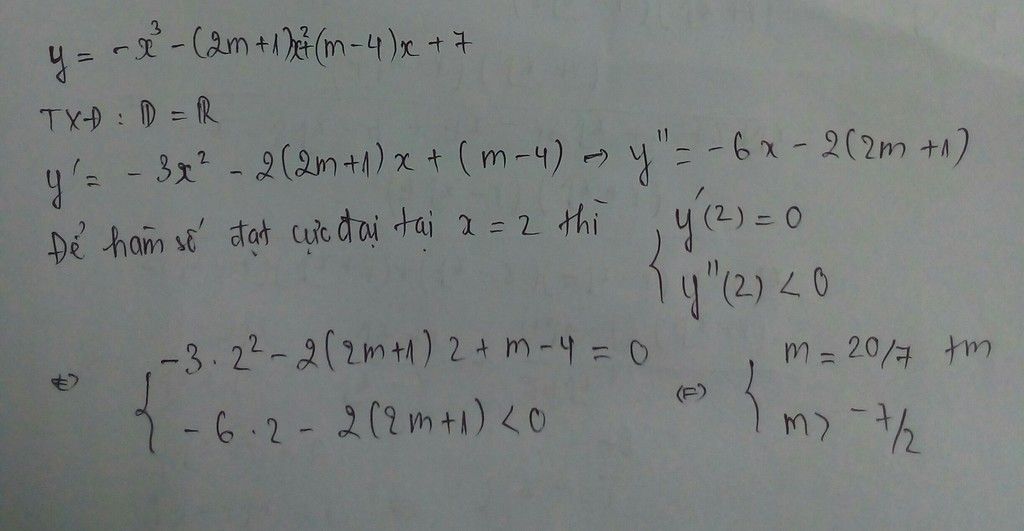 y = -x³ - (2m+1)x²+(m-4)x + 7
TXĐ : D = ℝ
y' = - 3x² - 2(2m+1)x + (m-4) → y" = -6x - 2(2m+1)
Để hàm số đạt cực đại tại x = 2 thì { y'(2) = 0
y"(2) < 0
<=> { -3·2² - 2(2m+1)2 + m-4 = 0
- 6·2 - 2(2m+1) < 0
(=) { m = 20/7 tm
m > -7/2